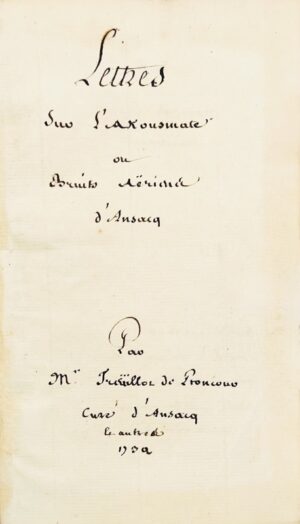 Lettres
Sur L'Akousmate
ou
Bruits Aëriens
d'Ansacq
Par
Mr. Treüillot de Ptoncour
Curé d'Ansacq
le autres